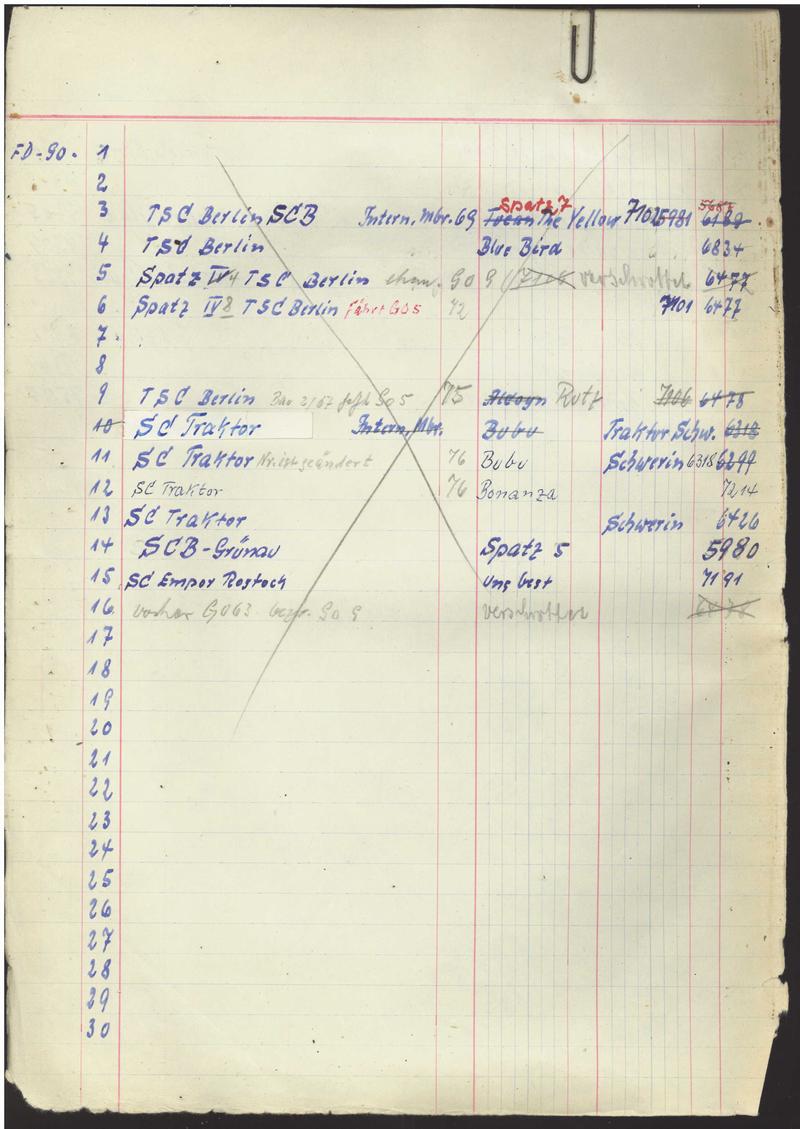 FD-90. 1
2
Spatz 7 5687
3 TSC Berlin SCB Intern. Mbr. 69 The Yellow 7102 5981 6189
4 TSC Berlin Blue Bird 6834
5 Spatz IV 4 TSC Berlin GO 9 verschrottet 6477
6 Spatz IV 8 TSC Berlin fährt GO5 72 7101 6477
7
8
9 TSC Berlin Bau 2/67 GO 5 75 7106 6478
10 SC Traktor Intern. Mbr. Bobo Traktor Schw. 6318
11 SC Traktor Nr. ist geändert 76 Bobo Schwerin 6318 6299
12 SC Traktor 76 Bonanza 7214
13 SC Traktor Schwerin 6426
14 SCB-Grünau Spatz 5 5980
15 SC Empor Rostock 7191
16 vorher GO63 GO 9 verschrottet
17
18
19
20
21
22
23
24
25
26
27
28
29
30